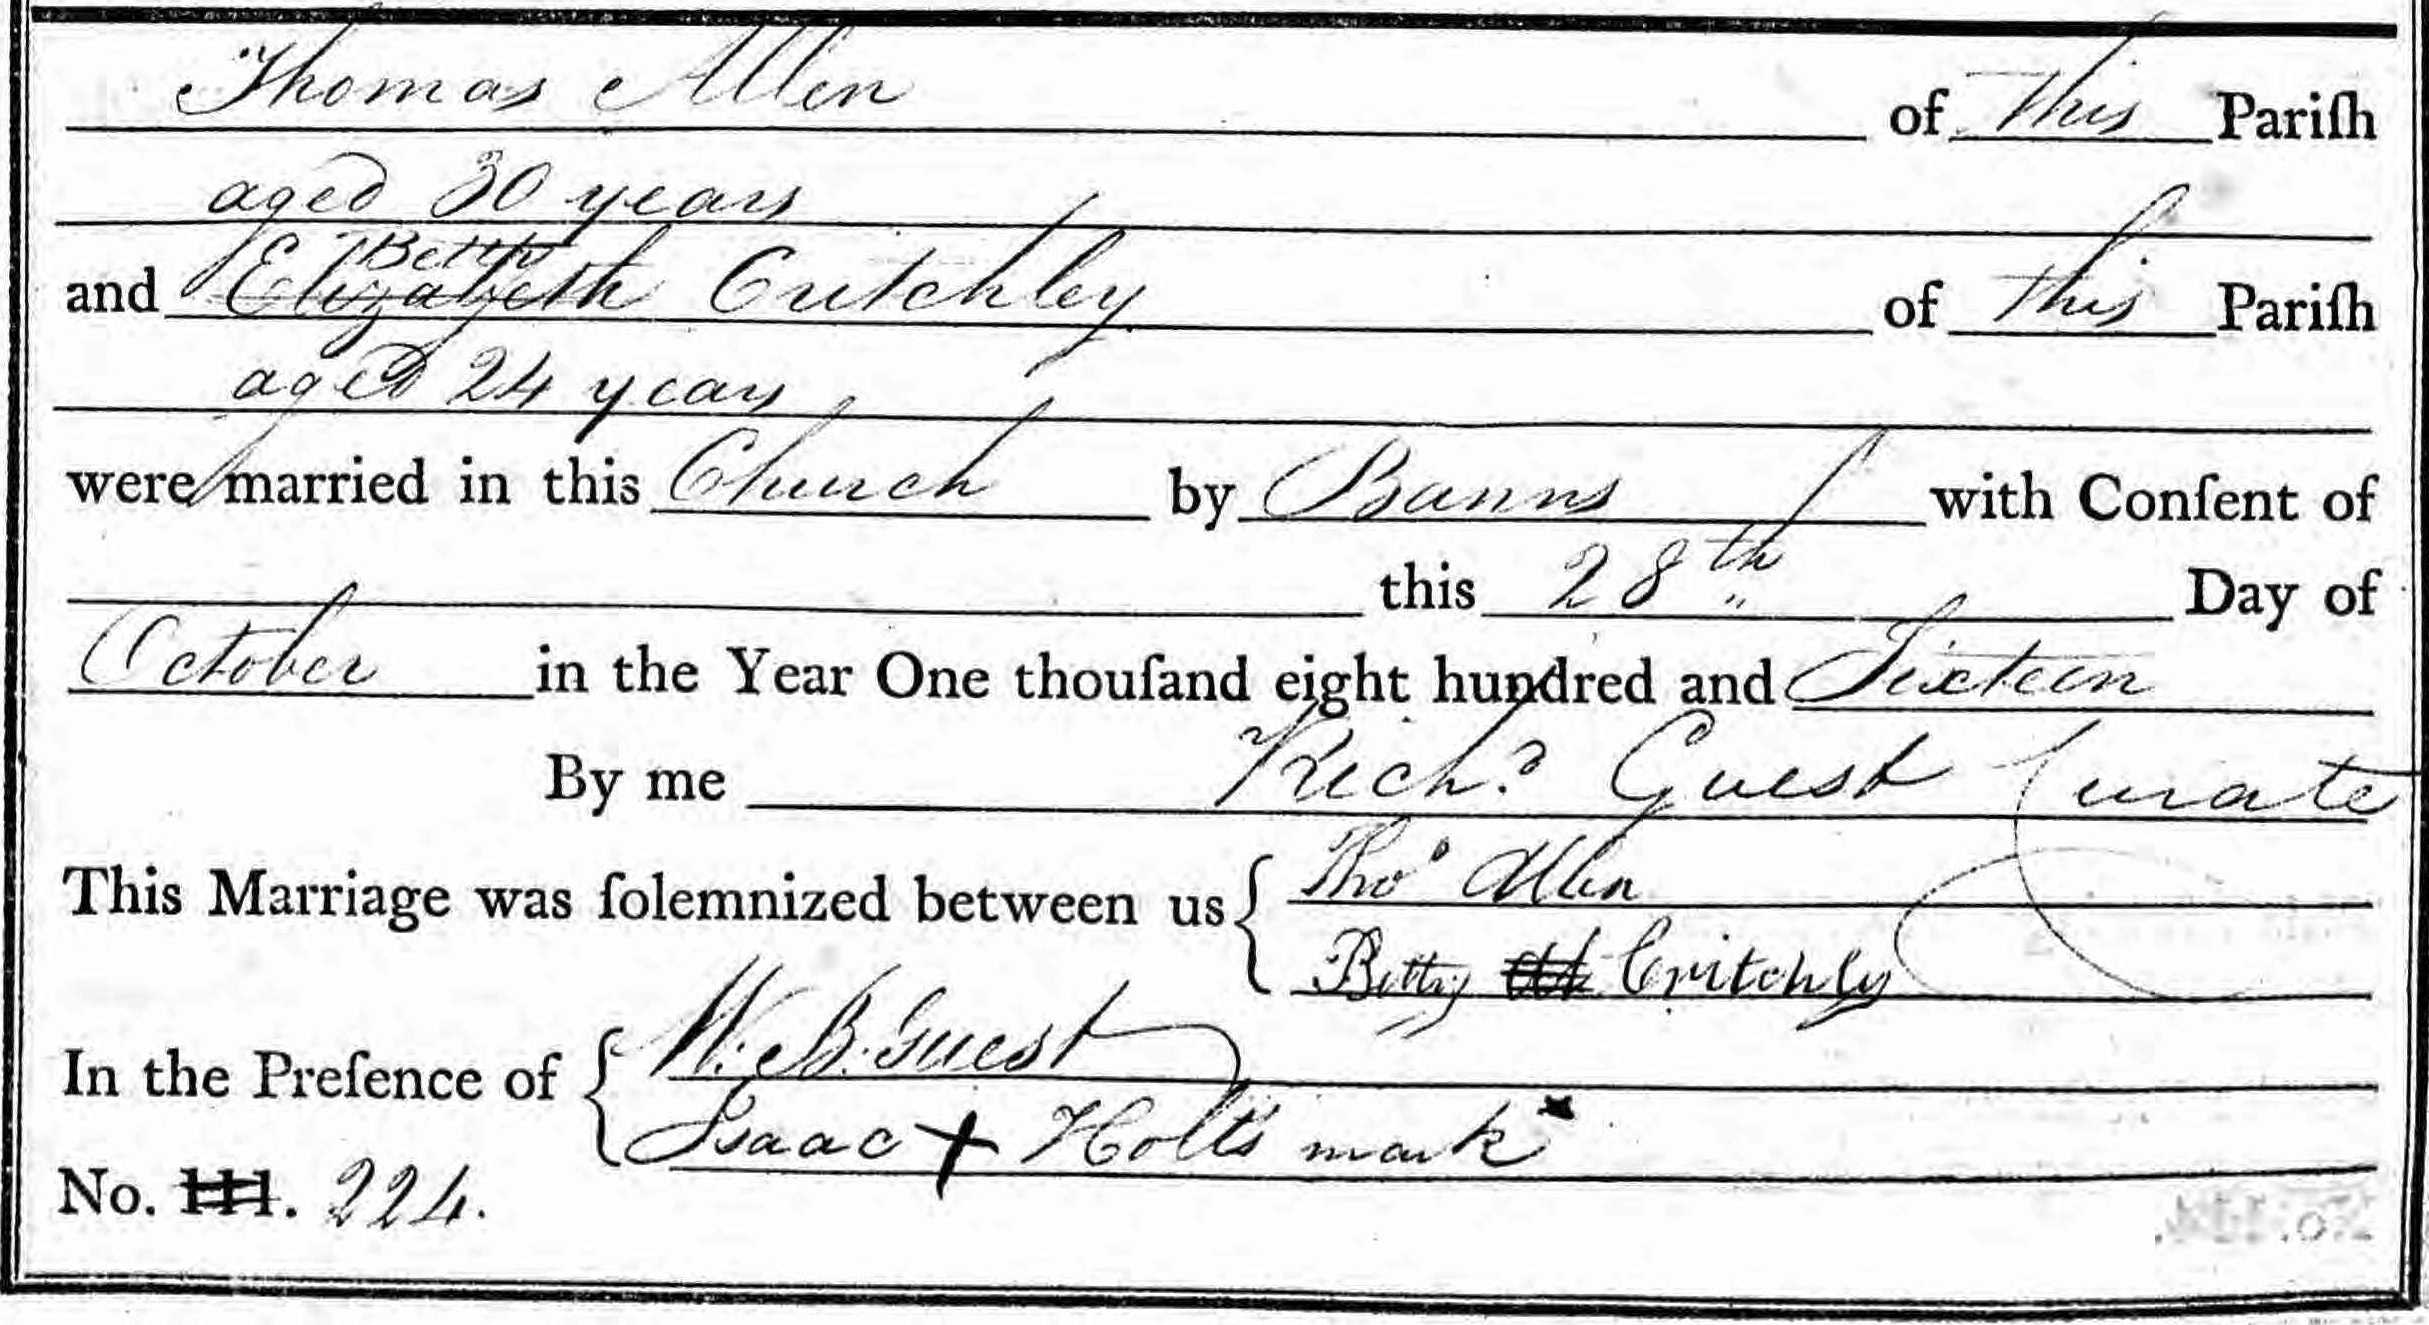 Thomas Allen of this Pariſh
aged 30 years
Betty
and Elizabeth Critchley of this Pariſh
aged 24 years
were married in this Church by Banns with Conſent of
this 28th Day of
October in the Year One thouſand eight hundred and Sixteen
By me Richd Guest Curate
This Marriage was ſolemnized between us { Thos Allen
Betty Critchly
In the Preſence of { W. B. Guest
Isaac + Holt's mark
No. 111. 224.